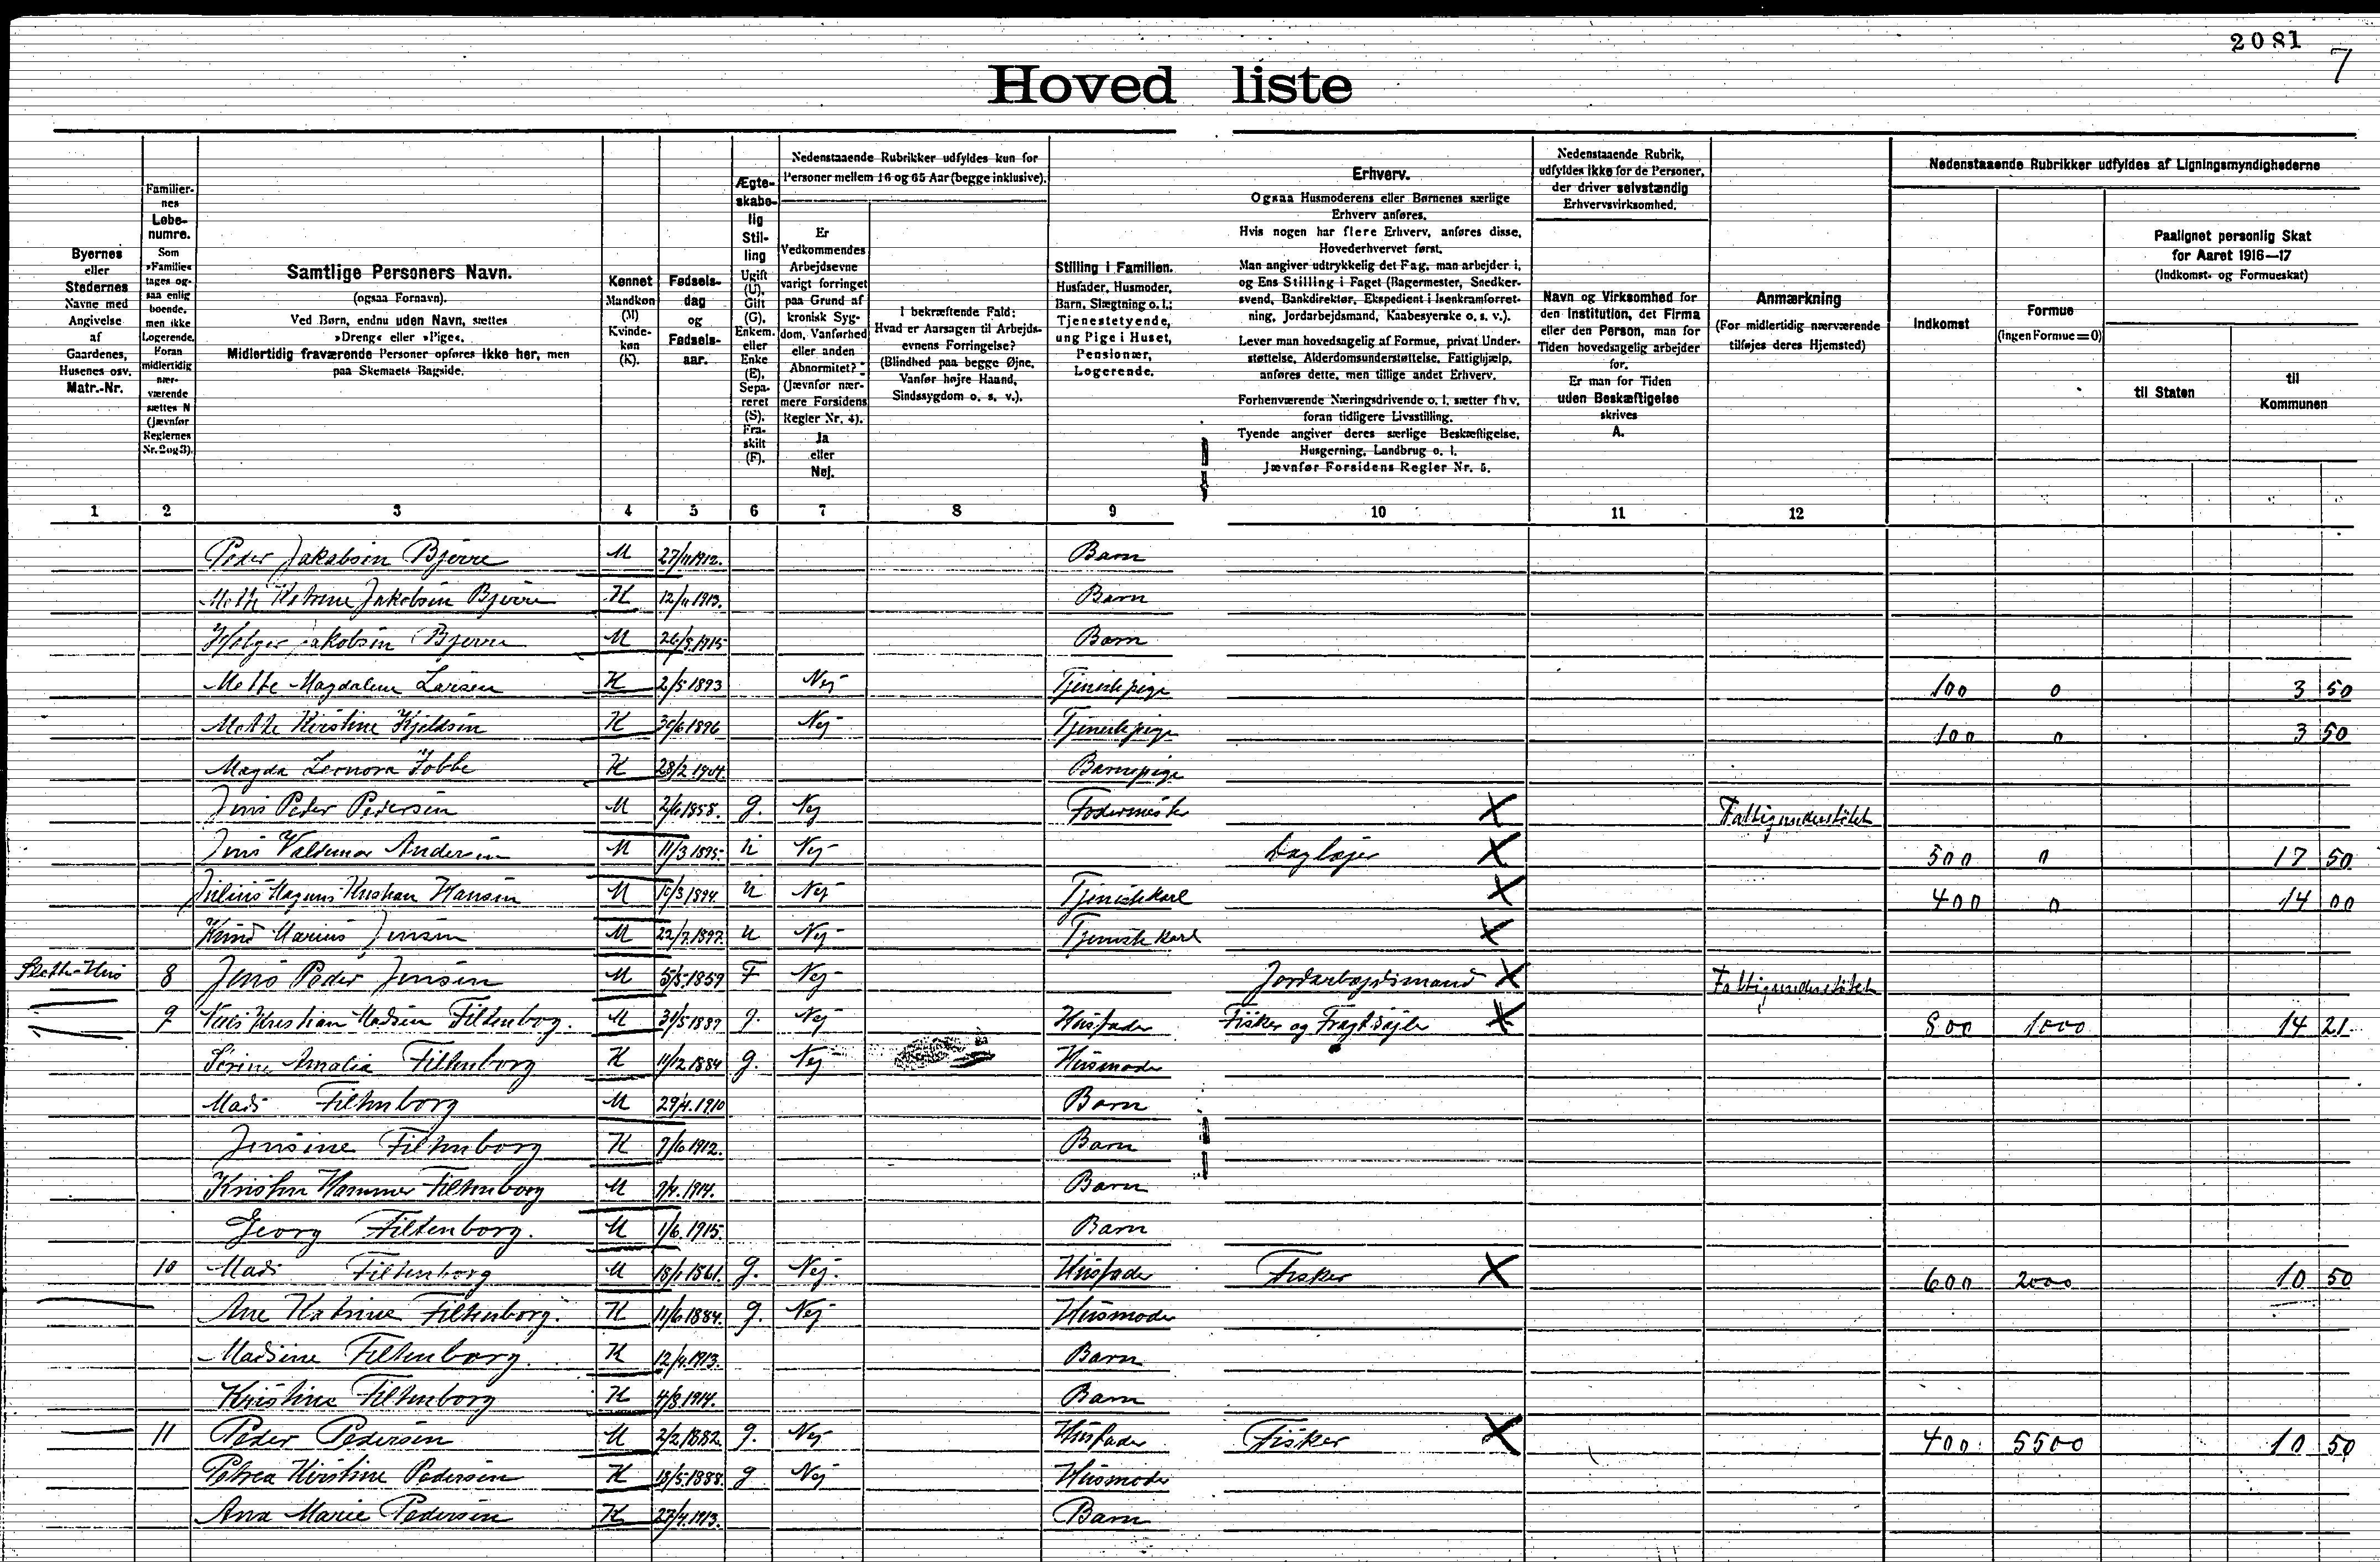 2081
7
Hoved liste
Byernes
eller
Stedernes
Navne med
Angivelse
af
Gaardenes,
Husenes osv.
Matr.-Nr.
Familier-
nes
Løbe-
numre.
Som
»Familie«
tages og-
saa enlig
boende,
men ikke
Logerende.
Foran
midlertidig
nær-
værende
sættes N
(jævnfør
Reglernes
Nr. 2 og 3).
Samtlige Personers Navn.
(ogsaa Fornavn).
Ved Børn, endnu uden Navn, sættes
»Dreng« eller »Pige«.
Midlertidig fraværende Personer opføres ikke her, men
paa Skemaets Bagside.
Kønnet
Mandkøn
(M)
Kvinde-
køn
(K).
Fødsels-
dag
og
Fødsels-
aar.
Ægte-
skabe-
lig
Stil-
ling
Ugift
(U).
Gift
(G).
Enkem.
eller
Enke
(E).
Sepa-
reret
(S).
Fra-
skilt
(F).
Nedenstaaende Rubrikker udfyldes kun for
Personer mellem 16 og 65 Aar (begge inklusive).
Er
Vedkommendes
Arbejdsevne
varigt forringet
paa Grund af
kronisk Syg-
dom, Vanførhed
eller anden
Abnormitet?
(Jævnfør nær-
mere Forsidens
Regler Nr. 4).
Ja
eller
Nej.
I bekræftende Fald:
Hvad er Aarsagen til Arbejds-
evnens Forringelse?
(Blindhed paa begge Øjne,
Vanfør højre Haand,
Sindssygdom o. s. v.).
Stilling i Familien.
Husfader, Husmoder,
Barn, Slægtning o. l.;
Tjenestetyende,
ung Pige i Huset,
Pensionær,
Logerende.
Erhverv.
Ogsaa Husmoderens eller Børnenes særlige
Erhverv anføres.
Hvis nogen har flere Erhverv, anføres disse,
Hovederhvervet først.
Man angiver udtrykkelig det Fag, man arbejder i,
og Ens Stilling i Faget (Bagermester, Snedker-
svend, Bankdirektør, Ekspedient i Isenkramforret-
ning, Jordarbejdsmand, Kaabesyerske o. s. v.).
Lever man hovedsagelig af Formue, privat Under-
støttelse, Alderdomsunderstøttelse, Fattighjælp,
anføres dette, men tillige andet Erhverv.
Forhenværende Næringsdrivende o. l. sætter fhv.
foran tidligere Livsstilling.
Tyende angiver deres særlige Beskæftigelse,
Husgerning, Landbrug o. l.
Jævnfør Forsidens Regler Nr. 5.
Nedenstaaende Rubrik,
udfyldes ikke for de Personer,
der driver selvstændig
Erhvervsvirksomhed.
Navn og Virksomhed for
den Institution, det Firma
eller den Person, man for
Tiden hovedsagelig arbejder
for.
Er man for Tiden
uden Beskæftigelse
skrives
A.
Anmærkning
(For midlertidig nærværende
tilføjes deres Hjemsted)
Nedenstaaende Rubrikker udfyldes af Ligningsmyndighederne
Indkomst
Formue
(Ingen Formue = 0)
Paalignet personlig Skat
for Aaret 1916—17
(Indkomst- og Formueskat)
til Staten
til
Kommunen
1 2 3 4 5 6 7 8 9 10 11 12
Peder Jakobsen Bjerre M 27/11 1912. Barn
Mette Katrine Jakobsen Bjerre K 12/11 1913. Barn
Holger Jakobsen Bjerre M Barn
Mette Magdalene Larsen K 2/5 1893 Nej Tjenestepige 100 0 3 50
Mette Kirstine Kjeldsen K 30/6 1896 Nej Tjenestepige 100 0 3 50
Magda Leonora K 28/2 1904. Barnepige
Jens Peder Pedersen M 2/6 1858. g. Nej Fodermester X Fattigunderstøttet
Jens Valdemar Andersen M 11/3 1895. u Nej Daglejer X 500 0 17 50
Julius Magnus Kristian Hansen M u Nej Tjenestekarl X 400 0 14 00
Knud Marius Jensen M 22/7. 1897. u Nej Tjenestekarl X
8 Jens Peder Jensen M 5/5. 1859 F Nej Jordarbejdsmand X Fattigunderstøttet
9 Niels Kristian Madsen Filtenborg. M 31/5 1887 g. Nej Husfader Fisker og Fragtsejler X 800 1000 14 21
Sørine Amalia Filtenborg K 11/12 1884 g. Nej Husmoder
Mads Filtenborg M 29/4. 1910 Barn
Jensine Filtenborg K 7/6 1912. Barn
Kristen Hammer Filtenborg M 7/4. 1914. Barn
Georg Filtenborg. M 1/6. 1915. Barn
10 Mads Filtenborg M 18/1 1861. g. Nej. Husfader Fisker X 600 2000 10 50
Ane Katrine Filtenborg. K 11/6 1884. g. Nej Husmoder
Madsine Filtenborg. K 12/4. 1913. Barn
Kristine Filtenborg K 4/8. 1914. Barn
11 Peder Pedersen M 2/2 1882 g. Nej Husfader Fisker X 400 5500 10 50
Petrea Kirstine Pedersen K 18/5. 1888. g Nej Husmoder
Ana Marie Pedersen K 27/4. 1913. Barn